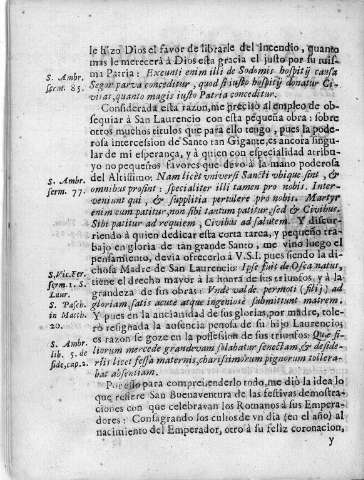 le hizo Dios el favor de librarle del incendio, quanto
mas le merecerà à Dios esta gracia el justo por su misma
S. Ambr. serm. 85.
ma Patria: Exeunti enim illi de Sodomis hospitij causa
Segor parva conceditur, quod si iusto hospitij donatur Ci-
vitas, quanto magis iusto Patria conceditur.
Considerada esta razon, me precisò al empleo de ob-
sequiar à San Laurencio con esta pequeña obra: sobre
otros muchos titulos que para ello tengo, pues la pode-
rosa intercession de Santo tan Gigante, es ancora singu-
lar de mi esperança, y à quien con especialidad atribu-
yo no pequeños favores que devo à la mano poderosa
S. Ambr. serm. 77.
del Altissimo: Nam licèt vniversi Sancti vbique sint, &
omnibus prosint: specialiter illi tamen pro nobis. Inter-
veniunt qui, & supplitia pertulere pro nobis. Martyr
enim cum patitur, non sibi tantum patitur, sed & Civibus.
Sibi patitur ad requiem, Civibus ad salutem. Y discur-
riendo à quien dedicar esta corta tarea, y pequeño tra-
bajo en gloria de tan grande Santo, me vino luego el
pensamiento, devia ofrecerlo à V.S.I. pues siendo la di-
S. Vic. Fer. serm. 1. S. Laur.
chosa Madre de San Laurencio: Ipse fuit de Osca natus,
tiene el derecho mayor à la honra de sus triunfos, y à la
S. Pasch. in Matth. 20.
grandeza de sus obras: Vnde valdè permoti (filij) ad
gloriam satis acutè atque ingeniosè submittunt matrem.
Y pues en la ancianidad de sus glorias, por madre, tole-
rò resignada la ausencia penosa de su hijo Laurencio;
S. Ambr. lib. 5. de fide, cap. 2.
es razon se goze en la possession de sus triunfos: Quæ fi-
liorum mercede grandævam solabatur senectam, & deside-
riis licet fessa maternis, charissimorum pignorum tollera-
bat absentiam.
Por esto para comprehenderlo todo, me diò la idea lo
que refiere San Buenaventura de las festivas demostra-
ciones con que celebravan los Romanos à sus Empera-
dores: Consagrando los cultos de vn dia (en el año) al
nacimiento del Emperador, otro à su feliz coronacion,
y